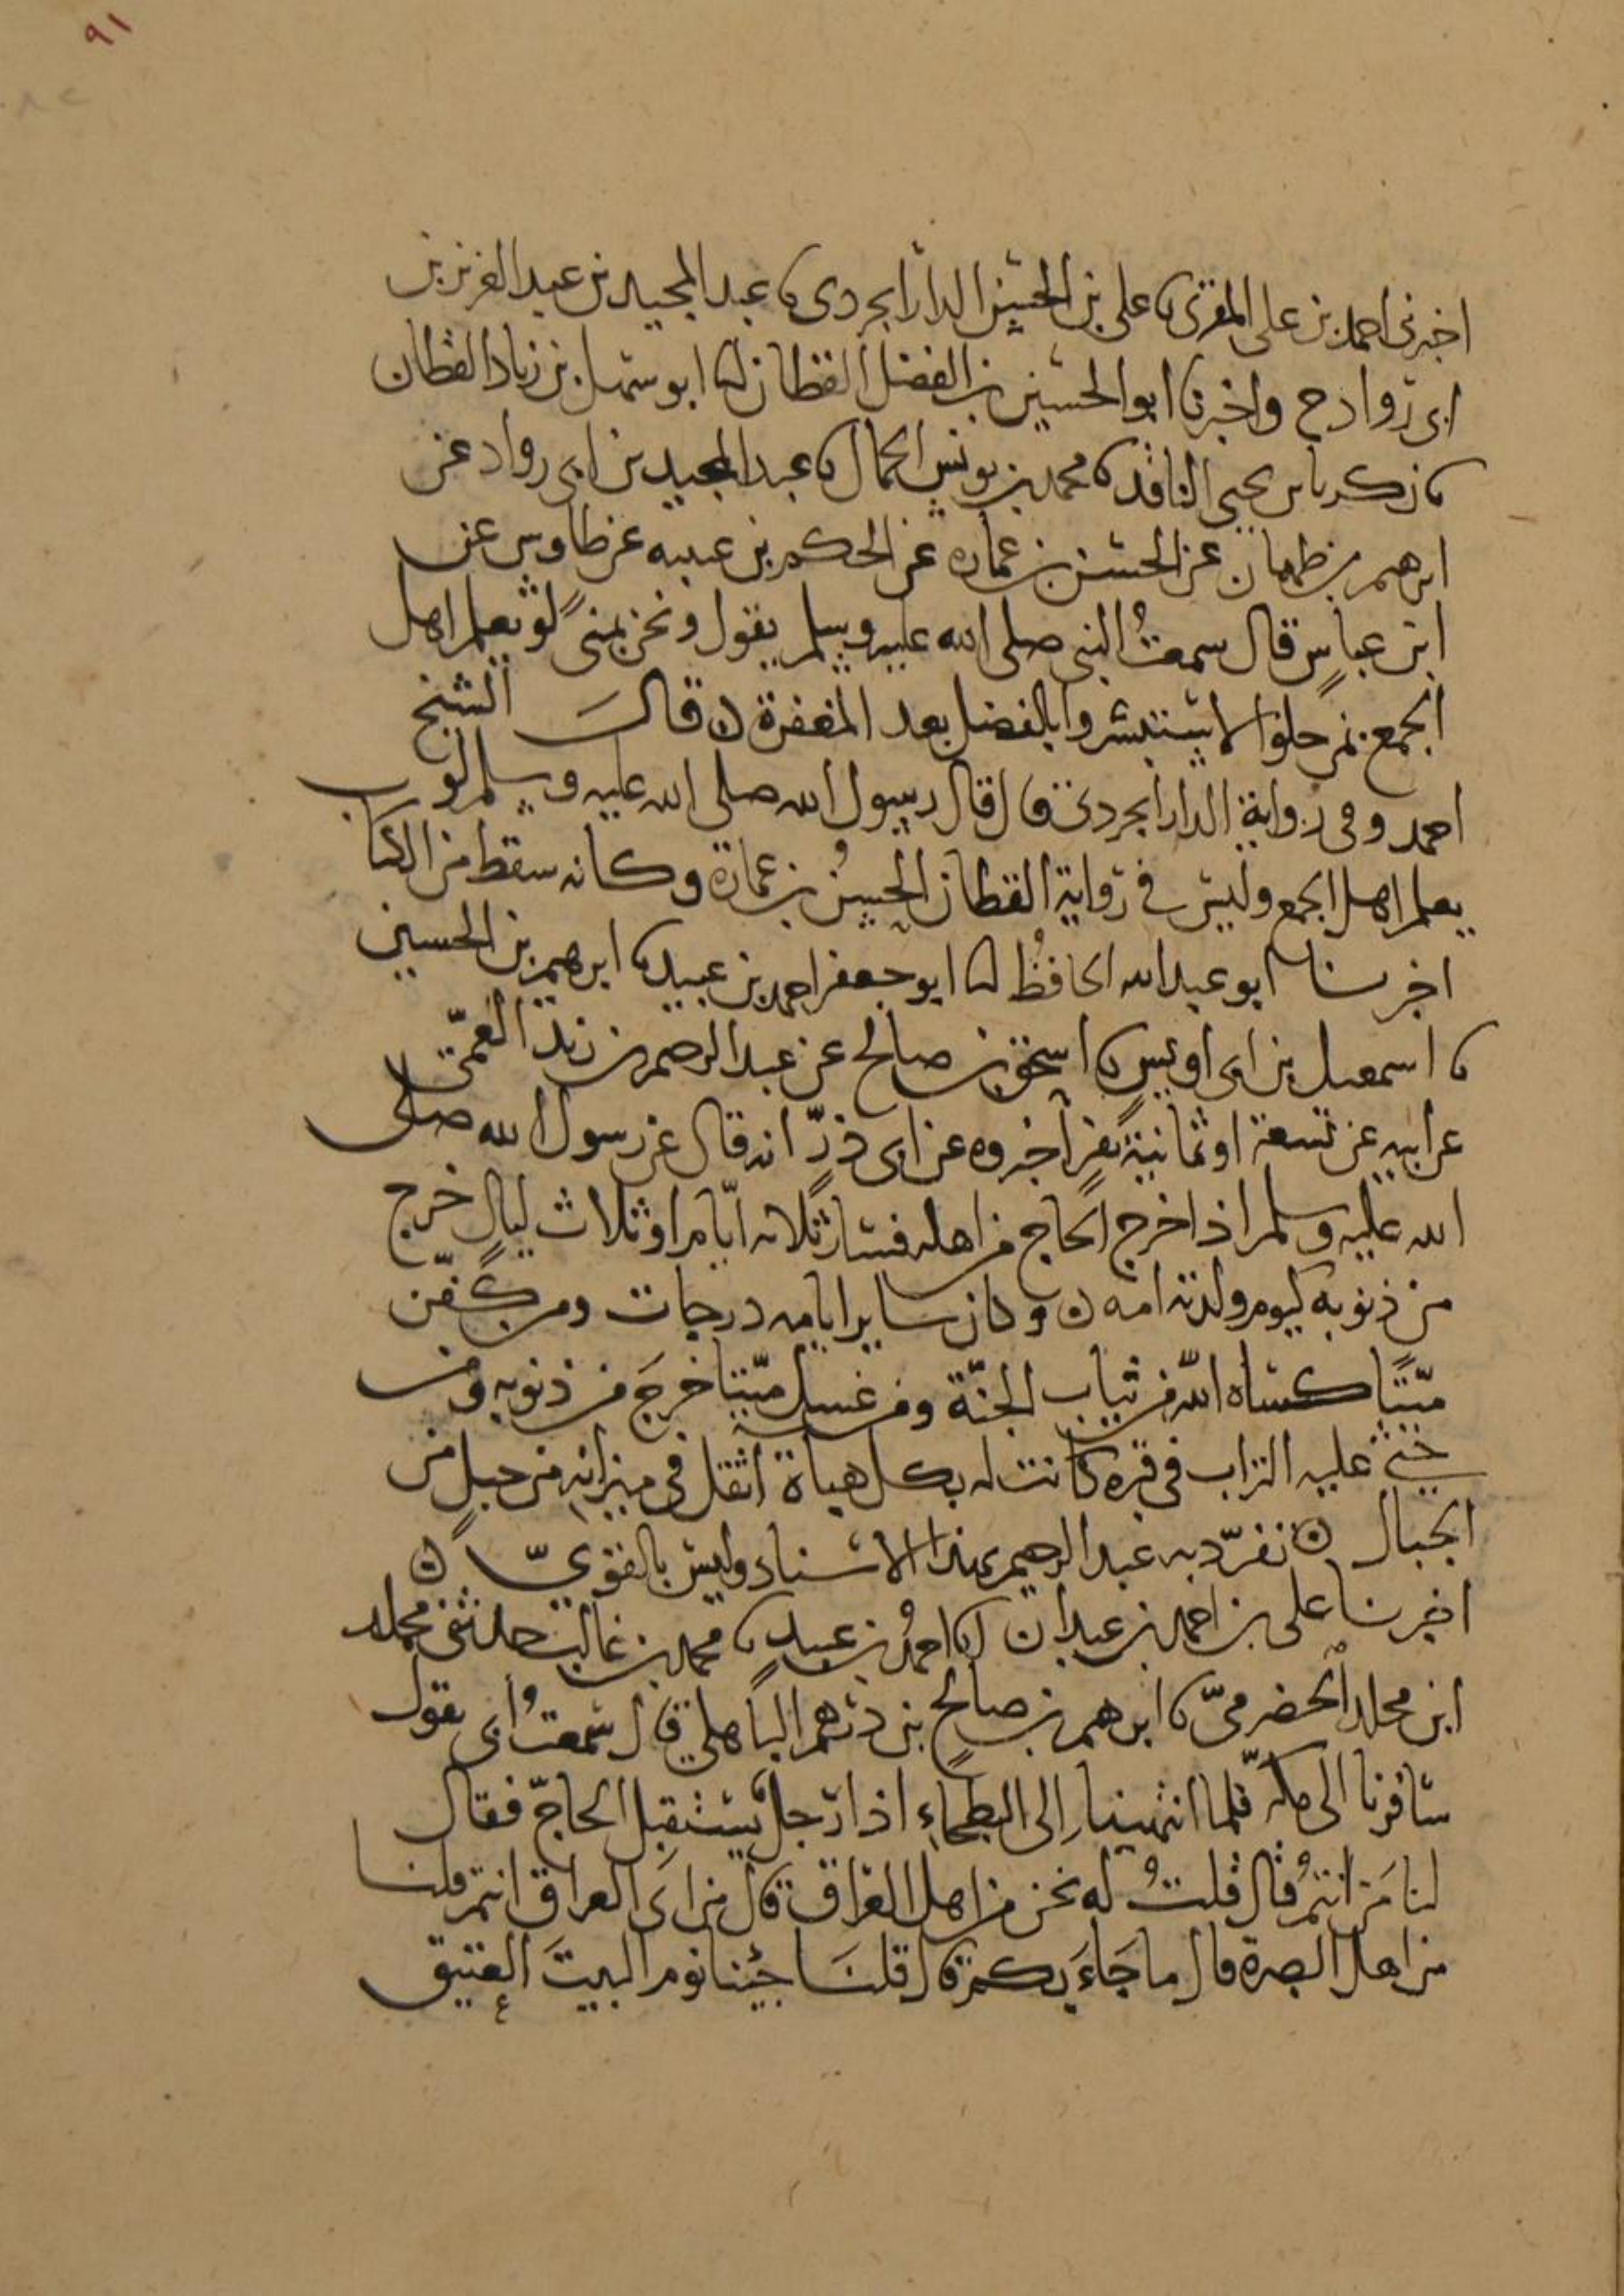 ٩١
اخبرنى احمد بن على المقرى ما على بن الحسين الدارابجردى ما عبد المجيد بن عبد العزيز بن
ابى رواد ح واخبرنا ابو الحسين بن الفضل القطان انا ابو سهل بن زياد القطان
ما زكريا بن يحيى الناقد ما محمد بن يونس الجمال ما عبد المجيد بن ابى رواد عن
ابرهيم بن طهمان عن الحسن بن عمارة عن الحكم بن عتيبه عن طاوس عن
ابن عباس قال سمعتُ النبى صلى الله عليه وسلم يقول ونحن بمنى لو يعلم اهل
الجمع بمن حلوا لاستبشروا بالفضل بعد المغفرة ن قالَ الشيخ
احمد وفى رواية الدارابجردى قال قال رسول الله صلى الله عليه وسلم لو
يعلم اهل الجمع وليس فى رواية القطان الحسنُ بن عمارة وكانه سقط من الكتاب
اخبرنا ابو عبد الله الحافظُ انا ابو جعفر احمد بن عبيد ما ابرهيم بن الحسين
ما اسمعيل بن ابى اويس ما اسحق بن صالح عن عبد الرحيم بن زيد العمّى
عن ابيه عن تسعة او ثمانية نفرٍ اخبروه عن ابى ذرّ انه قال عن رسول الله صلى
الله عليه وسلم اذا خرج الحاج من اهله فسار ثلاثه ايّام او ثلاث ليالٍ خرج
من ذنوبه كيوم ولدته امه ن وكان ساير ايامه درجات ومن كفّن
ميّتًا كساه الله من ثياب الجنّة ومن غسل ميّتا خرجَ من ذنوبه ومن
حثى عليه التراب فى قبره كانت له بكل هباة اثقل فى ميزانه من جبلٍ من
الجبال ن تفرّد به عبد الرحيم بهذا الاسناد وليس بالقوىّ ن
اخبرنا على بن احمد بن عبدان انا احمدُ بن عبيدٍ ما محمد بن غالب حدثنى محمد
ابن محلد الحضرمىّ ما ابرهيم بن صالح بن درهم الباهلى قال سمعتُ ابى يقول
سافرنا الى مكه فلما انتهينا الى البطحاءِ اذا رجلٌ يستقبل الحاجّ فقال
لنا مَن انتمُ قال قلتُ له نحن من اهل العراق قال من اىّ العراق انتم قلنا
من اهل البصرة قال ما جَاءَ بكم قال قلنَا جِئنا نوم البيتَ العتيق